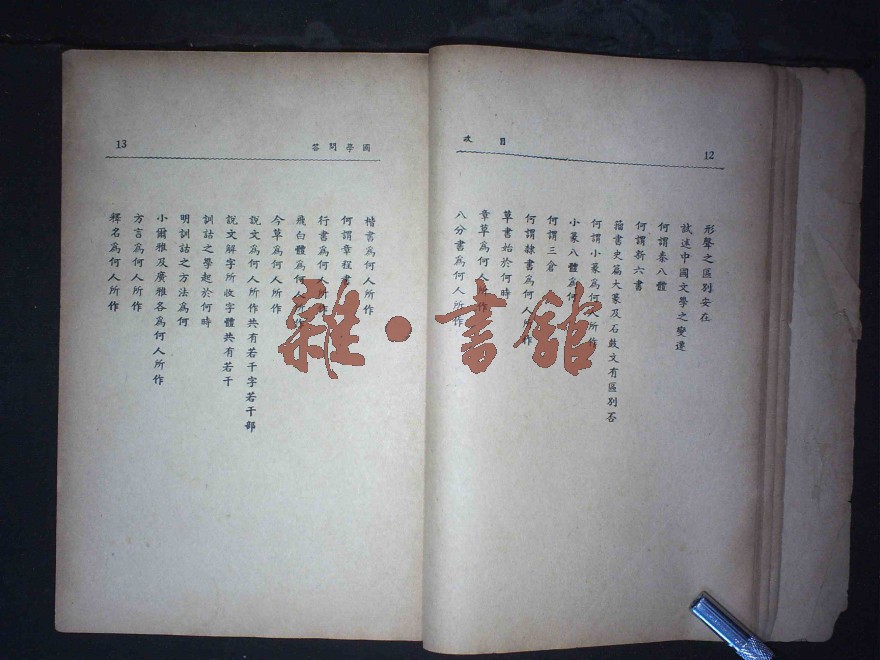 目次
12
形聲之區別安在
試述中國文學之變遷
何謂秦八體
何謂新六書
籀書史篇大篆及石鼓文有區別否
何謂小篆為何人所作
小篆八體為何
何謂三倉
何謂隸書為何人所作
草書始於何時
章草為何人所作
八分書為何人所作
國學問答
13
楷書為何人所作
何謂章程書
行書為何人所作
飛白體為何人所作
今草為何人所作
說文為何人所作共有若干字若干部
說文解字所收字體共有若干
訓詁之學起於何時
明訓詁之方法為何
小爾雅及廣雅各為何人所作
方言為何人所作
釋名為何人所作
雜·書館